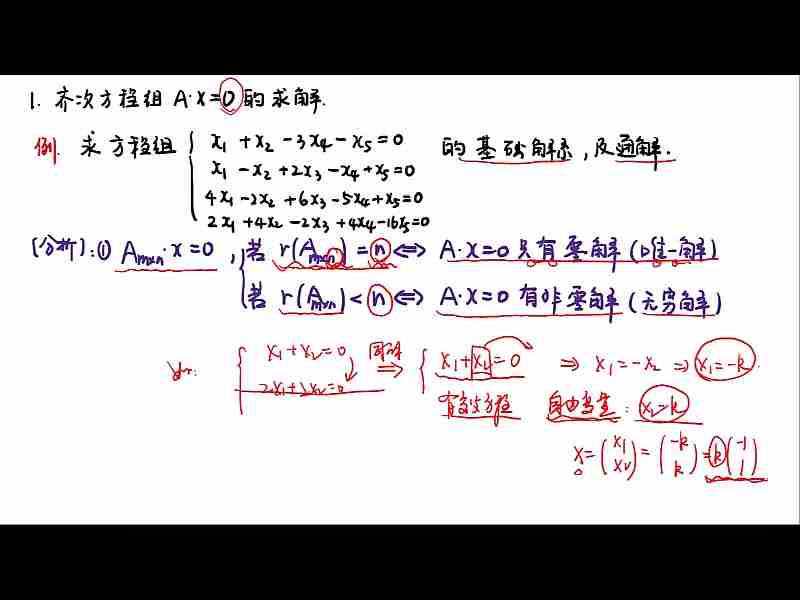 1. 齐次方程组 A·X=0 的求解.
例. 求方程组 { x₁+x₂-3x₄-x₅=0 的基础解系,及通解.
x₁-x₂+2x₃-x₄+x₅=0
4x₁-2x₂+6x₃-5x₄+x₅=0
2x₁+4x₂-2x₃+4x₄-16x₅=0
[分析]:① Aₘₓₙ·x=0,{若 r(Aₘₓₙ)=n ⇔ A·X=0 只有零解(唯一解)
若 r(Aₘₓₙ)<n ⇔ A·X=0 有非零解(无穷解)
{ x₁+x₂=0 同解 ⇒ { x₁+x₂=0 ⇒ x₁=-x₂ ⇒ x₁=-k.
2x₁+2x₂=0 有效方程 自由变量: x₂=k
X=(x₁ x₂)=(-k k)=k(-1 1)